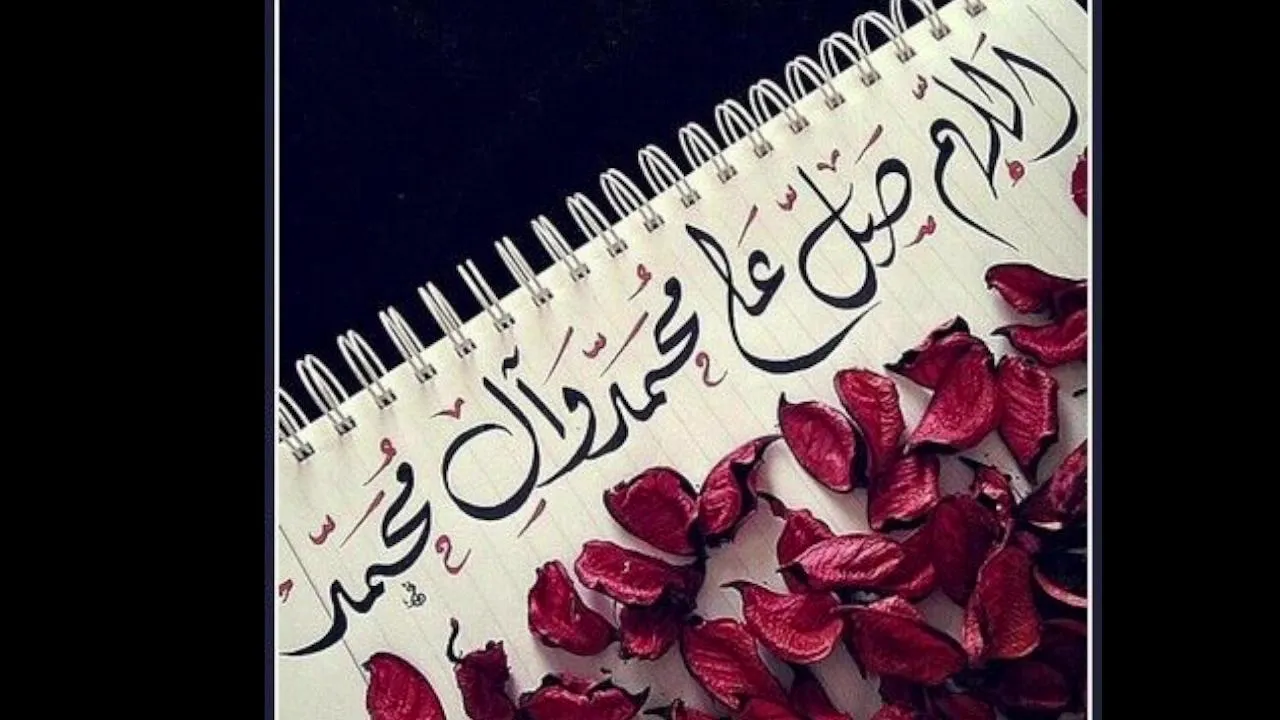 اللهم صَلِّ عَلى مُحَمَّدٍ وَآلِ مُحَمَّدٍ